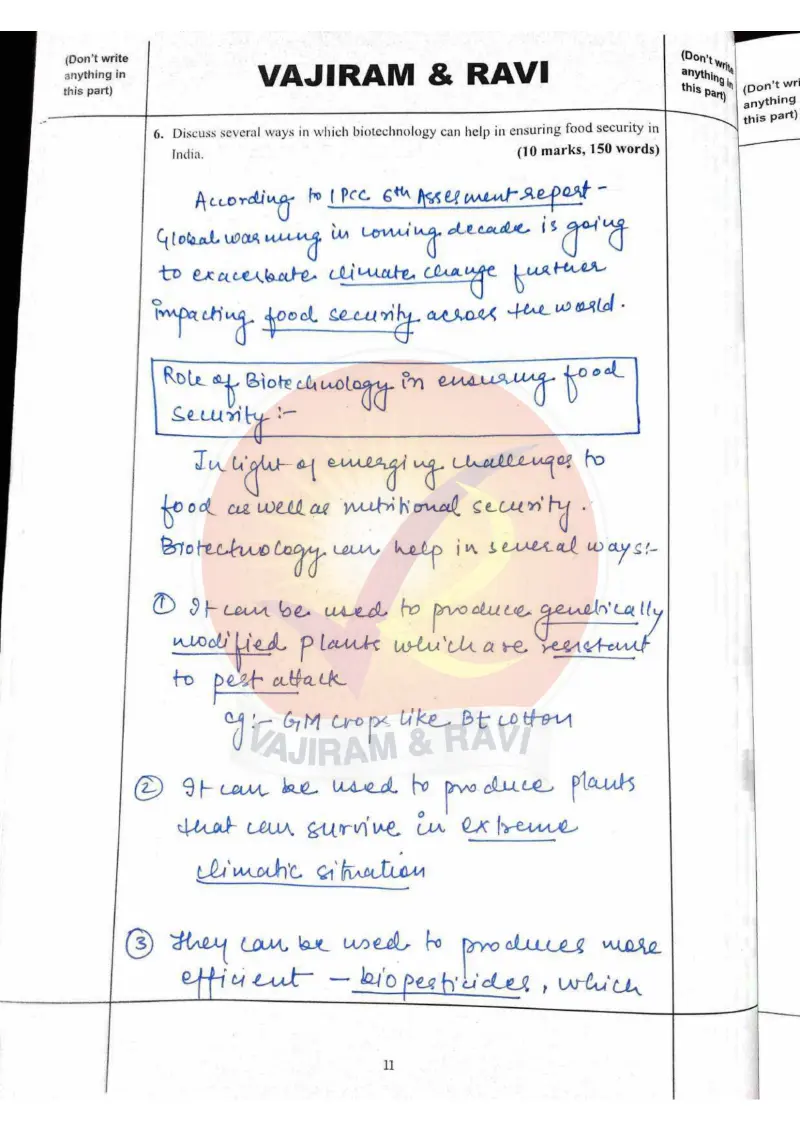 (Don't write
anything in
this part)
VAJIRAM & RAVI
(Don't write
anything in
this part)
(Don't wri
anything
this part)
6. Discuss several ways in which biotechnology can help in ensuring food security in
India. (10 marks, 150 words)
According to IPCC 6th Assesment report -
Global warming in coming decade is going
to exacerbate climate change further
impacting food security across the world.
Role of Biotechnology in ensuring food
Security :-
In light of emerging challenges to
food as well as nutritional security.
Biotechnology can help in several ways:-
① It can be used to produce genetically
modified plants which are resistant
to pest attack
eg:- GM crops like Bt cotton
VAJIRAM & RAVI
② It can be used to produce plants
that can survive in extreme
climatic situation
③ They can be used to produces more
efficient - biopesticides, which
11